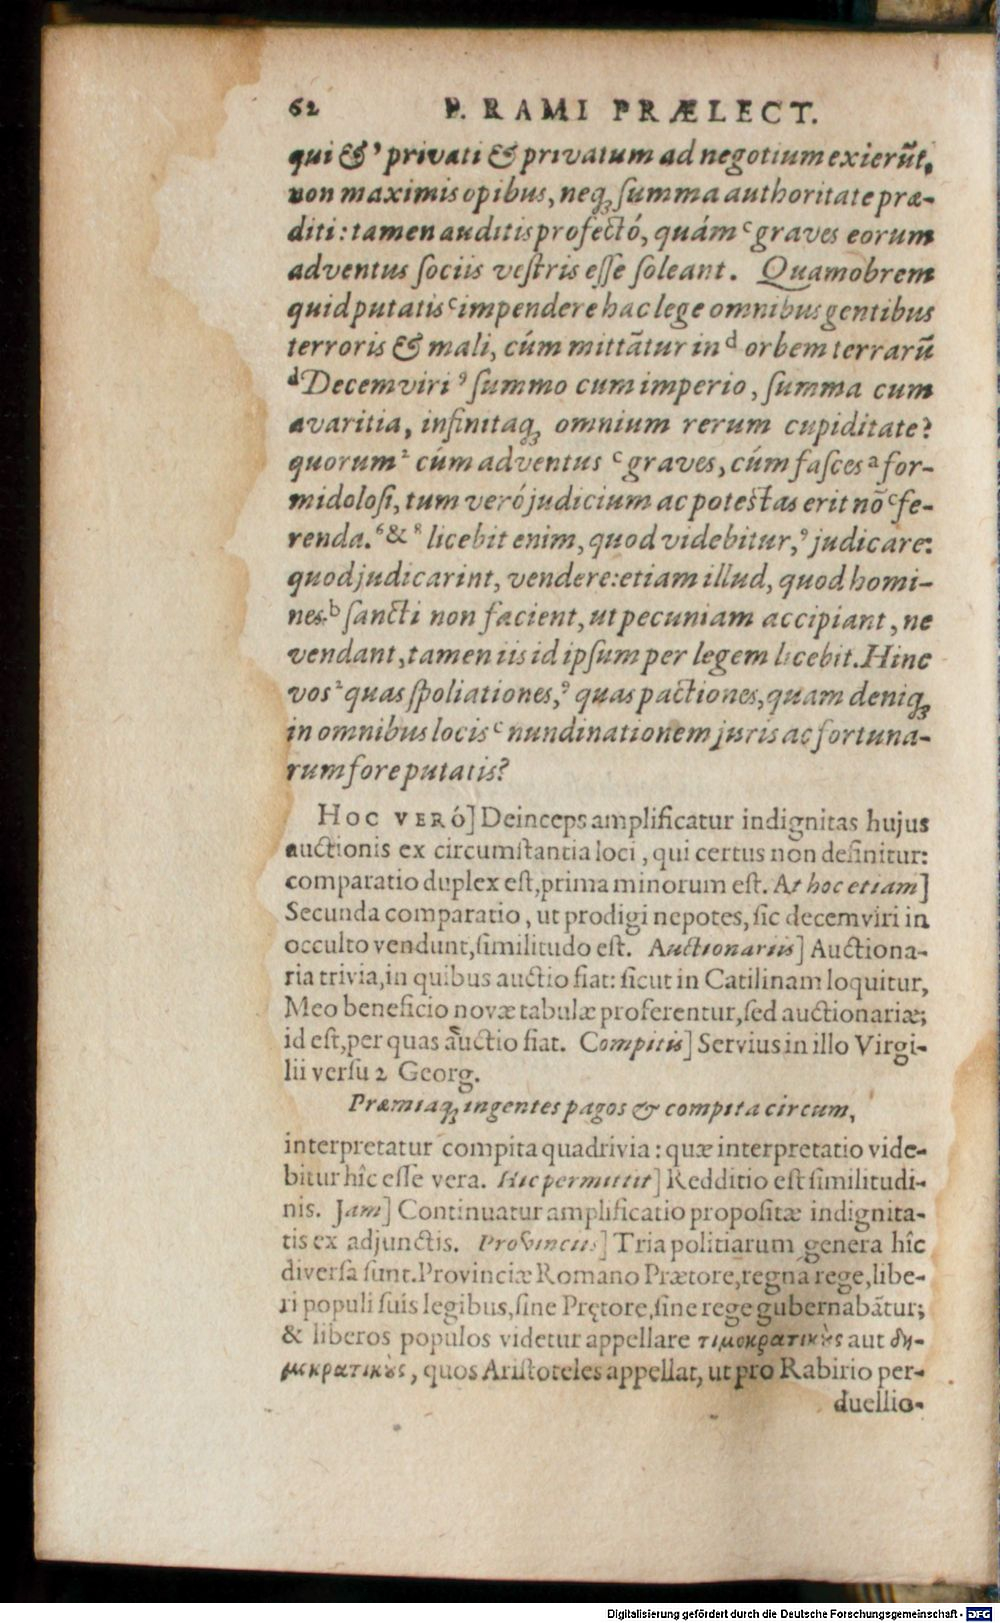 62 P. RAMI PRÆLECT.
qui &⁹ privati & privatum ad negotium exierũt,
non maximis opibus, neq; ſumma authoritate præ-
diti: tamen auditis profectó, quám ᶜgraves eorum
adventus ſociis veſtris eſſe ſoleant. Quamobrem
quid putatis ᶜimpendere hac lege omnibus gentibus
terroris & mali, cúm mittãtur in ᵈ orbem terrarũ
ᵈDecemviri ⁹ ſummo cum imperio, ſumma cum
avaritia, infinitaq; omnium rerum cupiditate?
quorum² cúm adventus ᶜgraves, cúm faſces ᵃfor-
midoloſi, tum veró judicium ac poteſtas erit nõ ᶜfe-
renda.⁶&⁸ licebit enim, quod videbitur,⁹ judicare:
quod judicarint, vendere: etiam illud, quod homi-
nes ᵇ ſancti non facient, ut pecuniam accipiant, ne
vendant, tamen iis id ipſum per legem licebit. Hinc
vos² quas ſpoliationes,⁹ quas pactiones, quam deniq;
in omnibus locis ᶜ nundinationem juris ac fortuna-
rum fore putatis?
HOC VERÓ] Deinceps amplificatur indignitas hujus
auctionis ex circumſtantia loci, qui certus non definitur:
comparatio duplex eſt, prima minorum eſt. At hoc etiam]
Secunda comparatio, ut prodigi nepotes, ſic decemviri in
occulto vendunt, ſimilitudo eſt. Auctionariis] Auctiona-
ria trivia, in quibus auctio fiat: ſicut in Catilinam loquitur,
Meo beneficio novæ tabulæ proferentur, ſed auctionariæ;
id eſt, per quas auctio fiat. Compitis] Servius in illo Virgi-
lii verſu 2 Georg.
Præmiaq; ingentes pagos & compita circum,
interpretatur compita quadrivia: quæ interpretatio vide-
bitur hîc eſſe vera. Hic permittit] Redditio eſt ſimilitudi-
nis. Jam] Continuatur amplificatio propoſitæ indignita-
tis ex adjunctis. Provinciis] Tria politiarum genera hîc
diverſa ſunt. Provinciæ Romano Prætore, regna rege, libe-
ri populi ſuis legibus, ſine Prętore, ſine rege gubernabãtur;
& liberos populos videtur appellare τιμοκρατικȣ̀ς aut δη-
μοκρατικȣ̀ς, quos Ariſtoteles appellat, ut pro Rabirio per-
duellio-
Digitalisierung gefördert durch die Deutsche Forschungsgemeinschaft - DFG